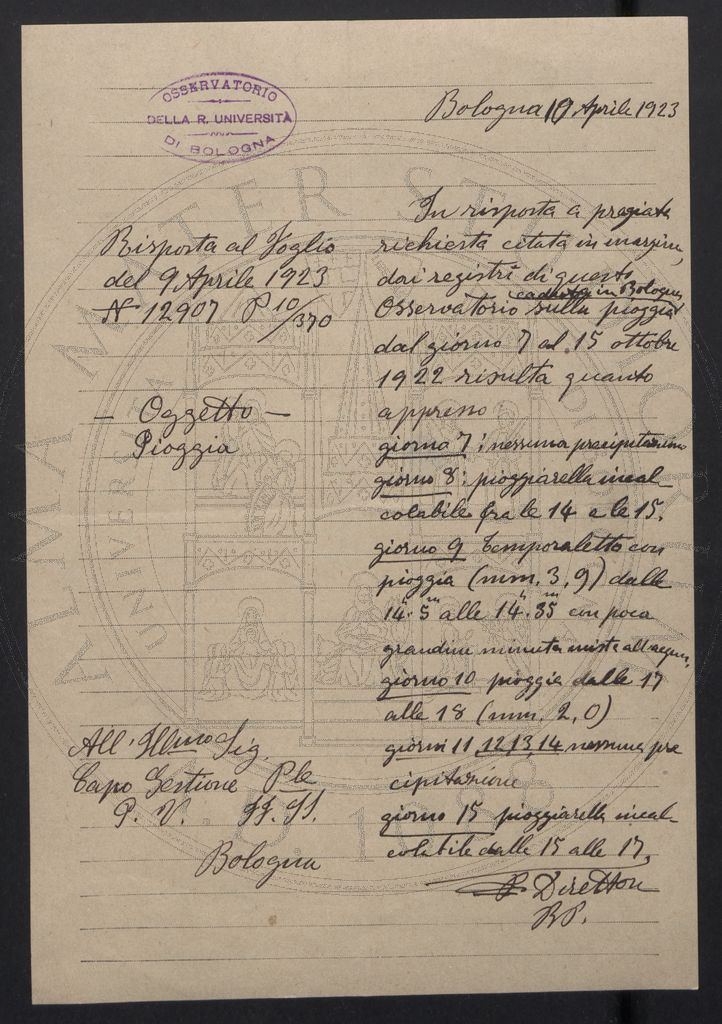 OSSERVATORIO
DELLA R. UNIVERSITÀ
DI BOLOGNA
Bologna 10 Aprile 1923
Risposta al Foglio
del 9 Aprile 1923
N° 12907 P 10/370
— Oggetto —
Pioggia
In risposta a pregiata
richiesta citata in margine,
dai registri di questo
Osservatorio sulla pioggia
caduta in Bologna
dal giorno 7 al 15 ottobre
1922 risulta quanto
appresso:
giorno 7: nessuna precipitazione
giorno 8: pioggiarella incal-
colabile fra le 14 e le 15.
giorno 9 temporaletto con
pioggia (mm. 3,9) dalle
14h.5m alle 14h.35m con poca
grandine minuta mista all'acqua,
giorno 10 pioggia dalle 17
alle 18 (mm. 2,0)
giorni 11, 12, 13, 14 nessuna pre
cipitazione
giorno 15 pioggiarella incal-
colabile dalle 15 alle 17.
Direttore
All'Illmo Sig.
Capo Gestione Ple
P. V. FF. SS.
Bologna
ALMA MATER STUDIORUM
A.D. 1088